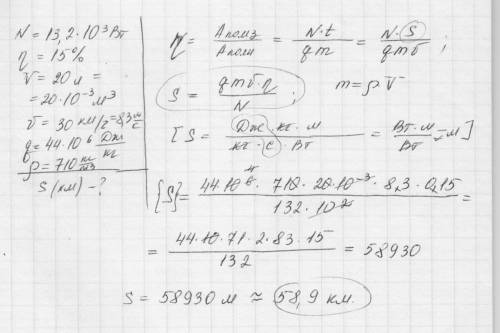 N = 13,2 · 10³ Вт
η = 15%
V = 20 л =
= 20·10⁻³ м³
v = 30 км/г = 8,3 м/с
q = 44·10⁶ Дж/кг
ρ = 710 кг/м³
S (км) - ?
η = Aполз/Aполн = N·t/qm = N·S/qmv ;
S = qmv·η/N ; m = ρ·V
[S = Дж·кг·м/кг·с·Вт = Вт·м/Вт = м]
{S} = 44·10⁶·710·20·10⁻³·8,3·0,15/132·10² =
= 44·10·71·2·83·15/132 = 58930
S = 58930 м ≈ 58,9 км.